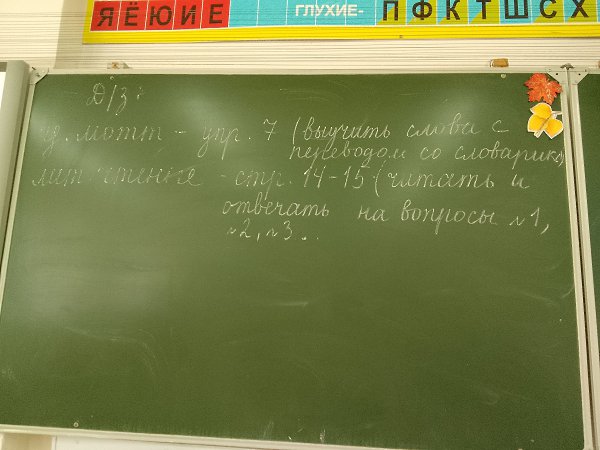 ЯЁЮИЕ ГЛУХИЕ- ПФКТШСХ
Д/З:
уд. мотт - упр. 7 (выучить слова с
переводом со словарик)
лит. чтение - стр. 14-15 (читать и
отвечать на вопросы №1,
№2, №3...